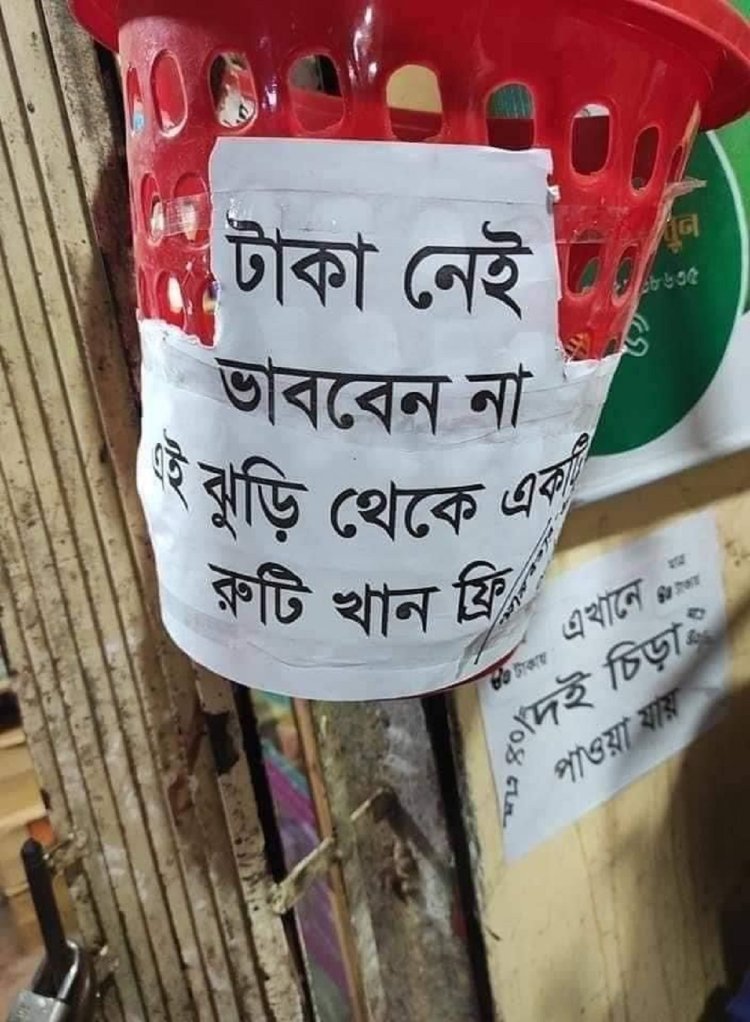 টাকা নেই
ভাববেন না
এই ঝুড়ি থেকে একটি
রুটি খান ফ্রি
এখানে
দই চিড়া
পাওয়া যায়